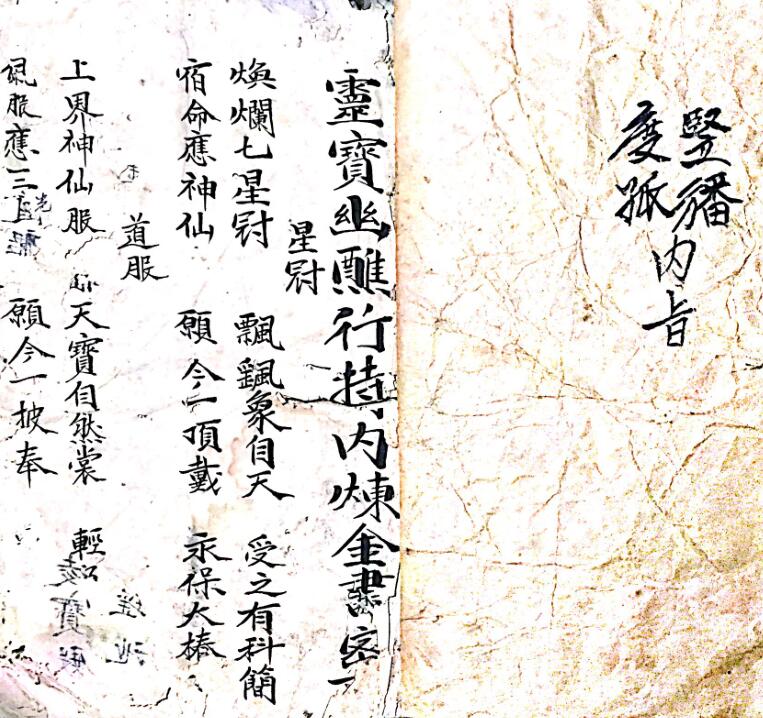 豎旛
度孤內旨
靈寶幽醮行持內煉金書密
星冠
煥爛七星冠 飄飄象自天 受之有科簡
宿命應神仙 願今一頂戴 永保大椿
道服
上界神仙服 天寶自然裳 輕
佩服應三 願今一披奉